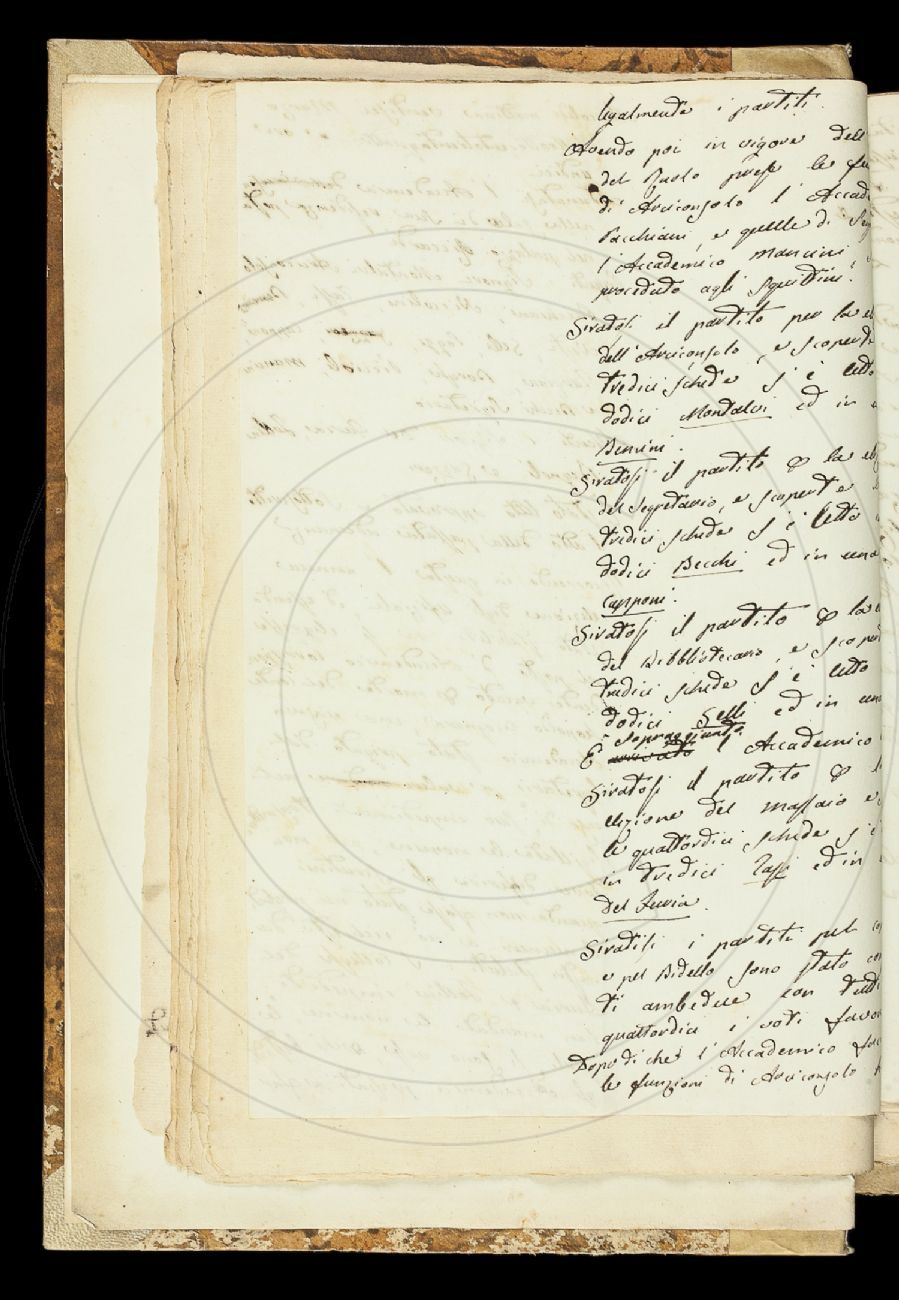 legalmente i partiti.
Avendo poi in vigore dell
del Ruolo prese le fu
di Arciconsolo l'Accad
Pacchiani, e quelle di Seg
l'Accademico Mancini,
proceduto agli Squittini.
Giratosi il partito per la el
dell'Arciconsolo, e scoperte
tredici schede s'è letto
dodici Montalvi ed in
Bencini.
Giratosi il partito p la ele
del Segretario, e scoperte
tredici schede s'è letto
dodici Becchi ed in una
Capponi.
Giratosi il partito p la
del Bibbliotecario, e scoper
tredici schede s'è letto
dodici Selli ed in una
sopraggiunto
È arrivato l'Accademico
Giratosi il partito p l
elezione del Massaio e
le quattordici schede s'è
in tredici Tassi ed in
del Furia.
Giratisi i partiti pel co
e pel Bidello sono stato con
ti ambedue con tutti
quattordici i voti favor
Dopo di che l'Accademico fac
le funzioni di Arciconsolo